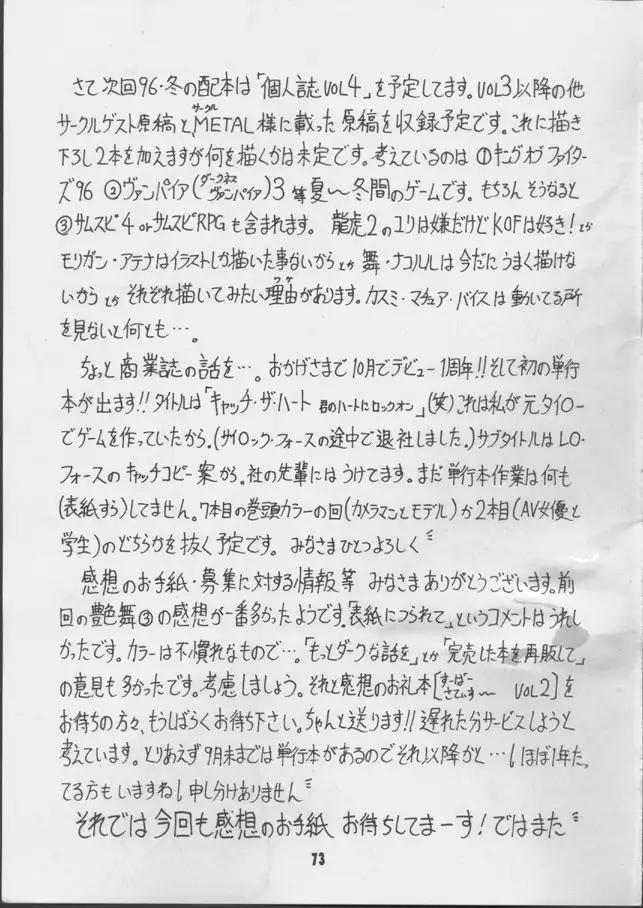 さて次回96・冬の配本は「個人誌VOL4」を予定してます。VOL3以降の他
サークルゲスト原稿と、METAL(サークル)様に載った原稿を収録予定です。これに描き
下ろし2本を加えますが何を描くかは未定です。考えているのは①キングオブファイター
ズ96 ②ヴァンパイア(ダークネス ヴァンパイア)3等夏〜冬間のゲームです。もちろんそうなると
③サムスピ4 or サムスピRPGも含まれます。 龍虎2のユリは嫌だけどKOFは好き!とか
モリガン・アテナはイラストしか描いた事ないからとか 舞・ナコルルは今だにうまく描けな
いからとか それぞれ描いてみたい理由(ワケ)があります。カスミ・マチュア・バイスは動いてる所
を見ないと何とも…。
ちょっと商業誌の話を…。おかげさまで10月でデビュー1周年!!そして初の単行
本が出ます!!タイトルは「キャッチ・ザ・ハート 君のハートにロックオン」(笑)これは私が元タイロー
でゲームを作っていたから。(サイロック・フォースの途中で退社しました。)サブタイトルはLO・
フォースのキャッチコピー案から。社の先輩にはうけてます。まだ単行本作業は何も
(表紙すら)してません。7本目の巻頭カラーの回(カメラマンとモデル)か2本目(AV女優と
学生)のどちらかを抜く予定です。 みなさまひとつよろしく
感想のお手紙・募集に対する情報等 みなさまありがとうございます。前
回の艶色舞③の感想が一番多かったようです。「表紙につられて」というコメントはうれし
かったです。カラーは不慣れなもので…。「もっとダークな話を」とか「完売した本を再販して」
の意見も多かったです。考慮しましょう。それと感想のお礼本[すーぱーさでぃすと〜 VOL2]を
お待ちの方々、もうしばらくお待ち下さい。ちゃんと送ります!!遅れた分サービスしようと
考えています。とりあえず9月末までは単行本があるのでそれ以降かと…(ほぼ1年た、
てる方もいますね)申し分けありません
それでは今回も感想のお手紙 お待ちしてまーす!ではまた
73